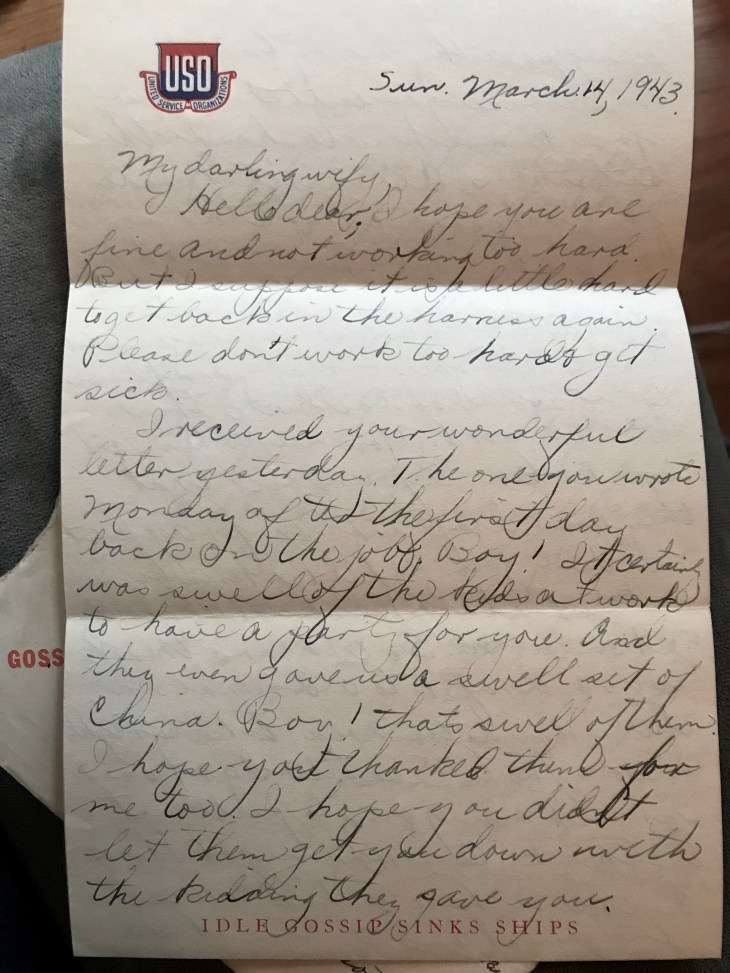 USO
UNITED SERVICE ORGANIZATIONS
Sun. March. 14, 1943.
My darling wify,
Hello dear! I hope you are
fine and not working too hard.
But I suppose it is a little hard
to get back in the harness again.
Please don't work too hard & get
sick.
I received your wonderful
letter yesterday. The one you wrote
Monday after the first day
back on the job. Boy! It certainly
was swell of the kids at work
to have a party for you. And
they even gave us a swell set of
China. Boy! thats swell of them.
I hope you thanked them for
me too. I hope you didn't
let them get you down with
the kidding they gave you.
IDLE GOSSIP SINKS SHIPS
GOSS